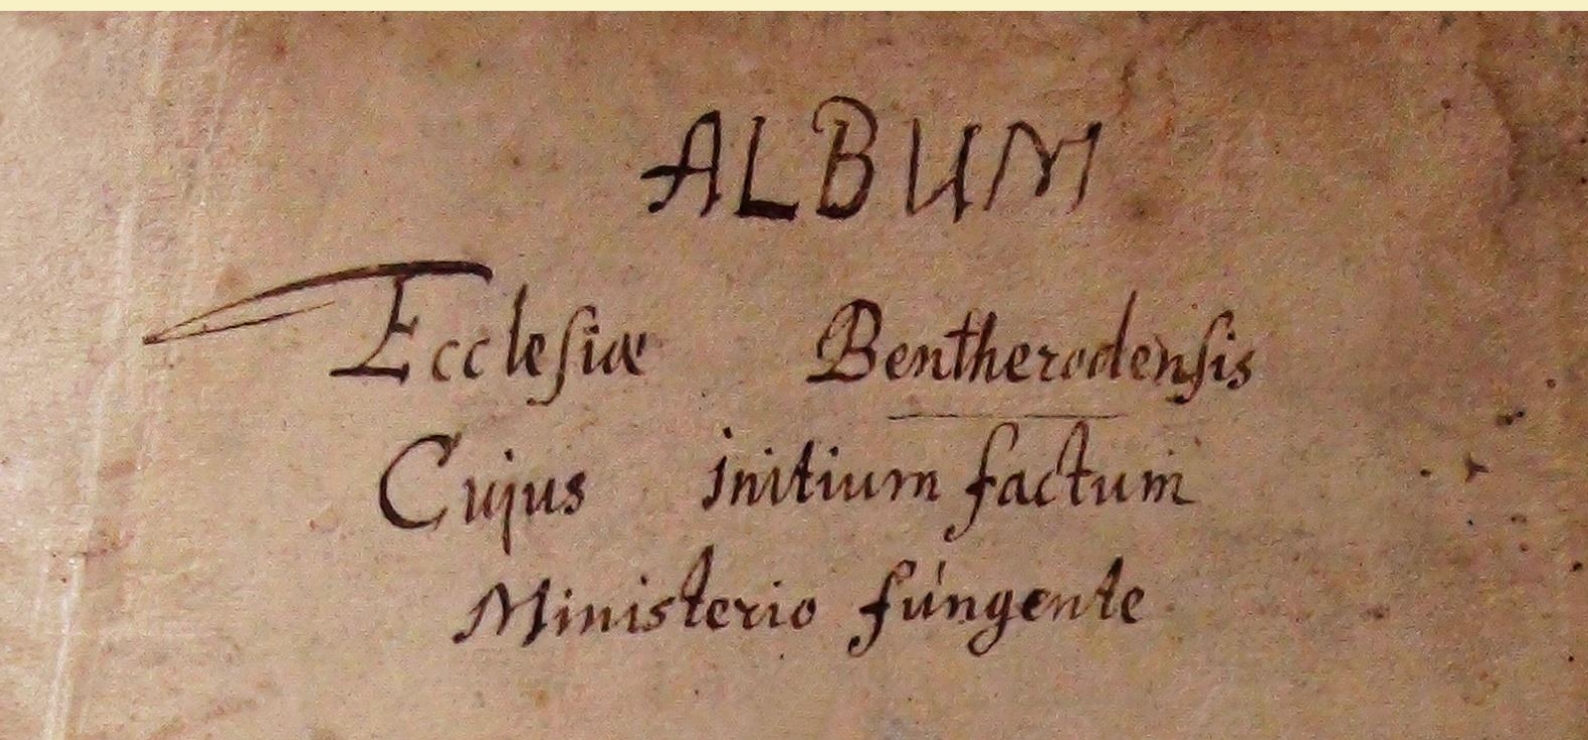 ALBUM
Eccleſiæ Bentherodenſis
Cujus initium factum
Ministerio fúngente